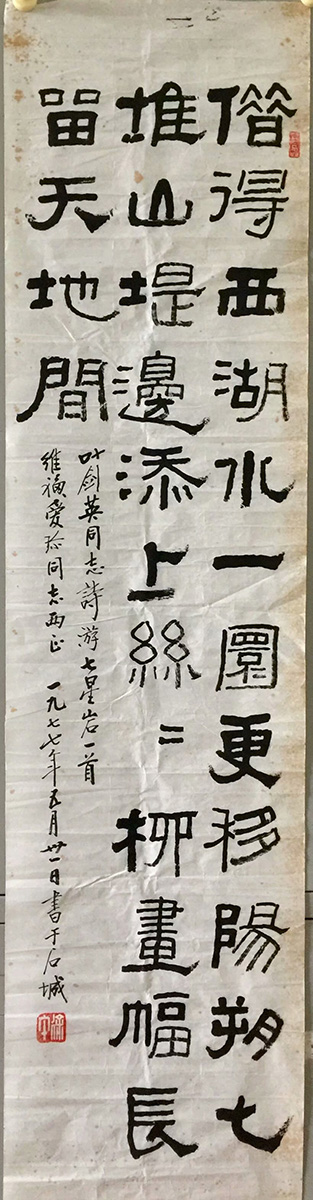 借得西湖水一圜更移陽朔七
堆山堤邊添上絲〻柳畫幅長
留天地間
叶劍英同志詩游七星岩一首
維禎愛珍同志两正 一九七七年五月卅一日書于石城